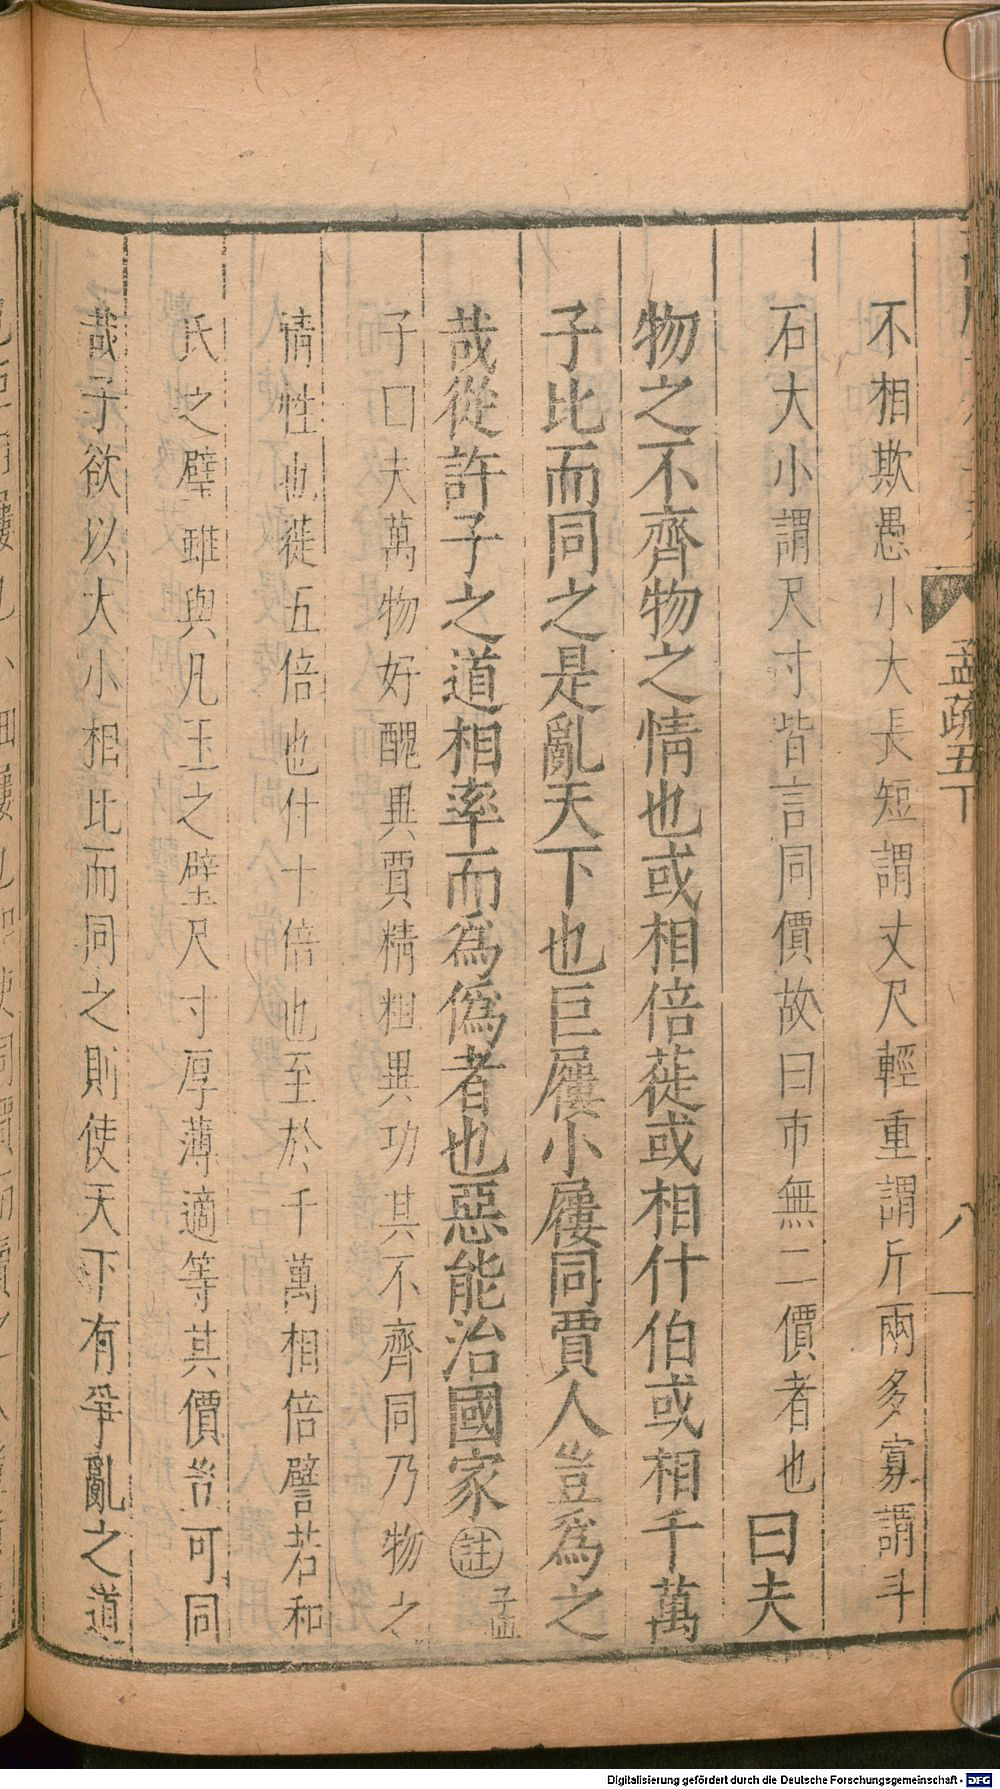 孟疏五下
八
不相欺愚小大長短謂丈尺輕重謂斤兩多寡謂斗
石大小謂尺寸皆言同價故曰市無二價者也曰夫
物之不齊物之情也或相倍蓰或相什伯或相千萬
子比而同之是亂天下也巨屨小屨同賈人豈爲之
哉從許子之道相率而爲僞者也惡能治國家註孟
子曰夫萬物好醜異賈精粗異功其不齊同乃物之
情性也蓰五倍也什十倍也至於千萬相倍譬若和
氏之璧雖與凡玉之璧尺寸厚薄適等其價豈可同
哉子欲以大小相比而同之則使天下有爭亂之道
Digitalisierung gefördert durch die Deutsche Forschungsgemeinschaft - DFG